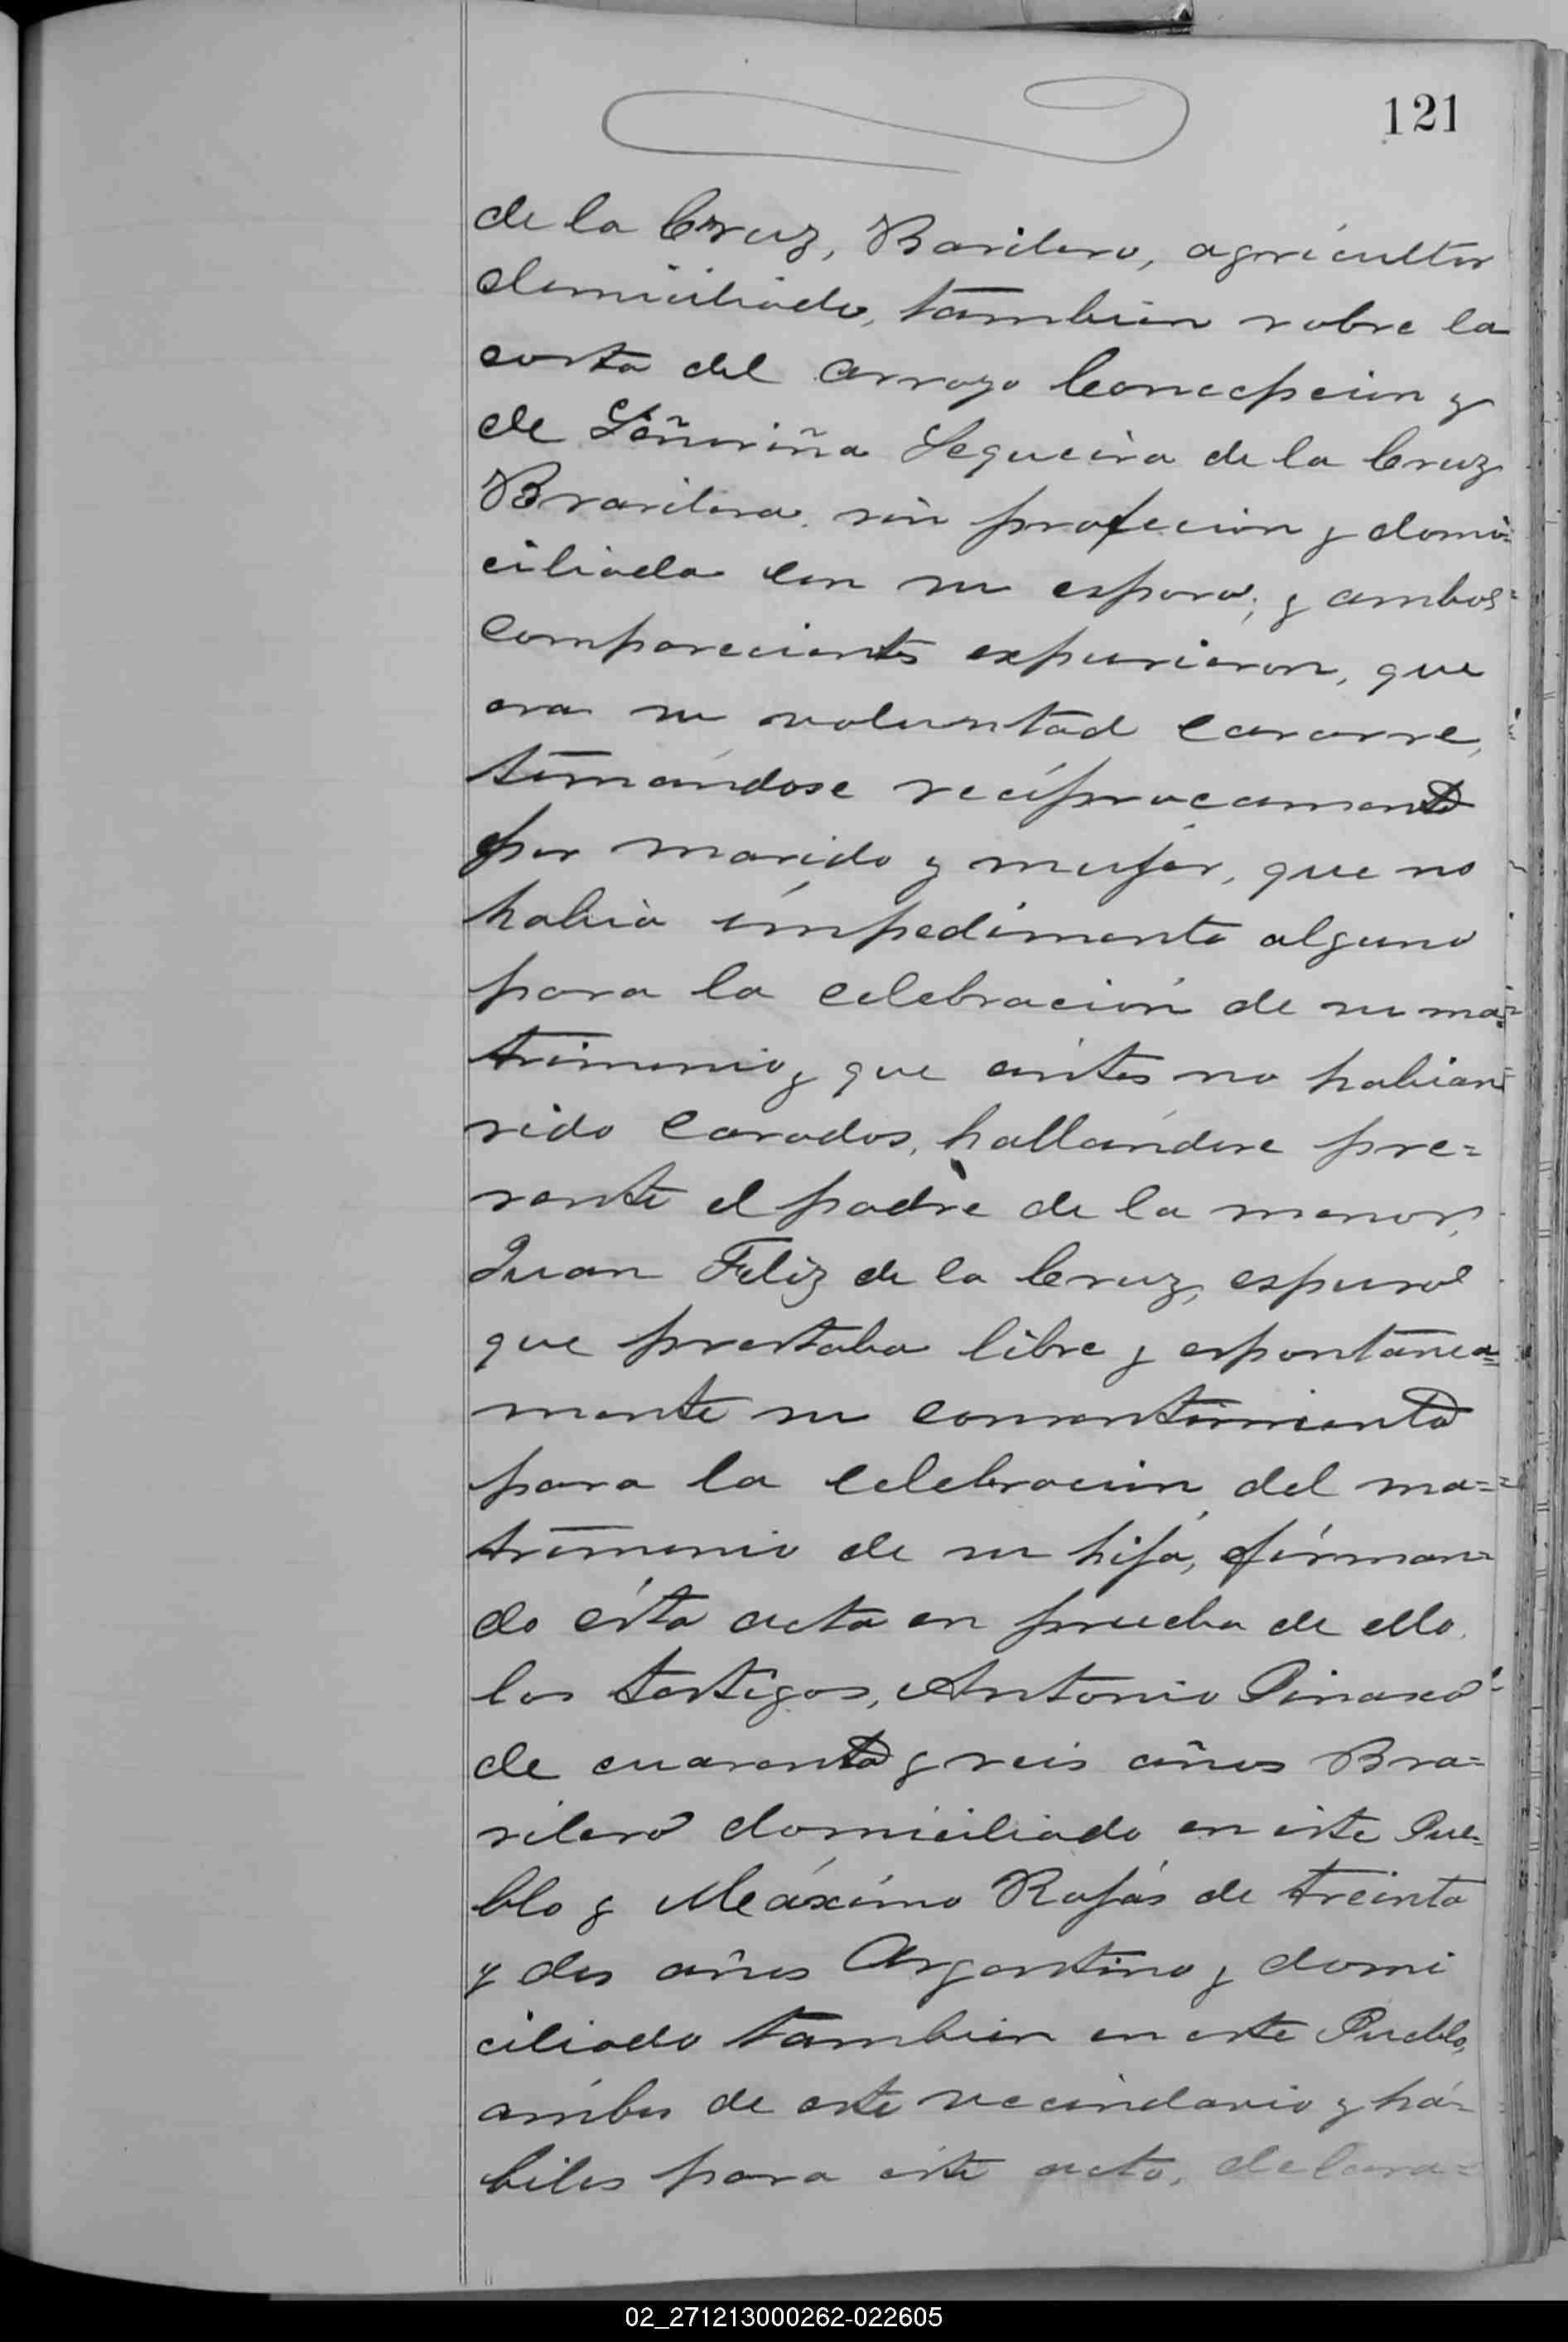 121
de la Cruz, Barilero, agricultor
domiciliado, tambien sobre la
costa del arroyo Concepcion y
de Señoriña Sequeira de la Cruz
Brasilera, sin profecion y domi=
ciliada con su esposo; y ambos
comparecientes expusieron, que
era su voluntad casarse,
tomándose recíprocamente
por marido y mujer, que no
había impedimento alguno
para la celebración de su ma=
trimonio y que antes no habian
sido casados, hallándose pre=
sente el padre de la menor,
Juan Feliz de la Cruz, espuso
que prestaba libre y espontánea=
mente su consentimiento
para la celebracion del ma=
trimonio de su hija, firman=
do ésta acta en prueba de ello
los testigos, Antonio Pinasco
de cuarenta y seis años Bra=
silero domiciliado en este Pue=
blo y Máximo Rojás de treinta
y dos años Argentino y domi
ciliado tambien en este Pueblo,
ambos de este vecindario y há=
biles para este acto, declara=
02_271213000262-022605